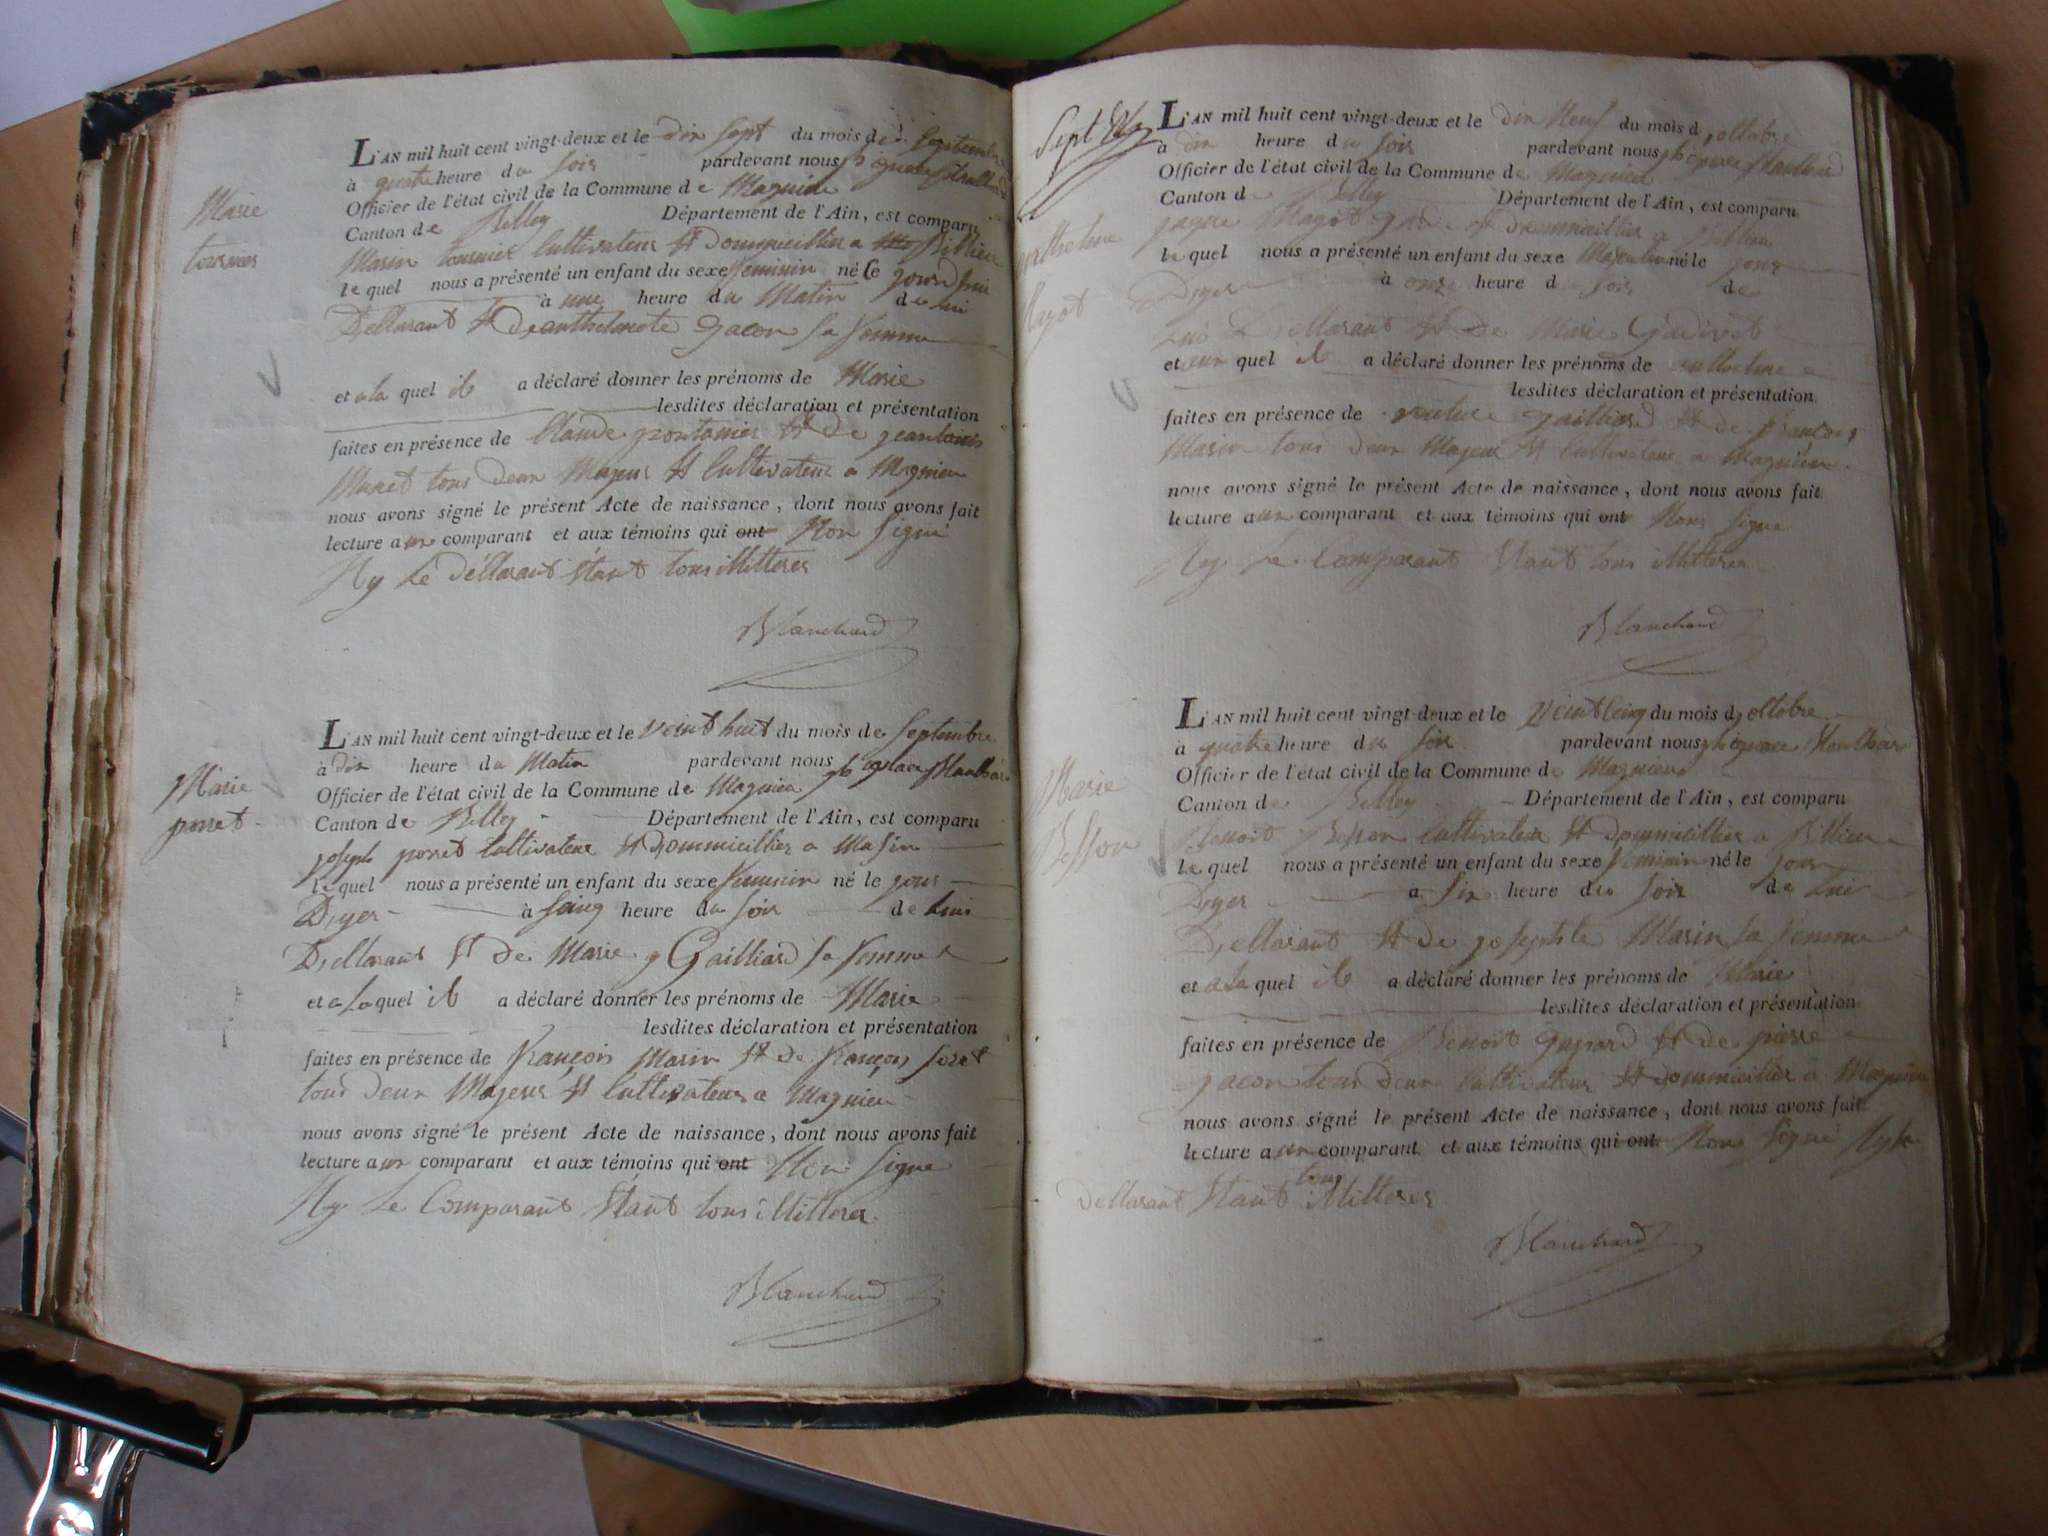 Marie
tournier
L'AN mil huit cent vingt-deux et le dix sept du mois de Septembre
à quatre heure du soir pardevant nous
Officier de l'état civil de la Commune de Magnieu
Canton de Belley Département de l'Ain, est comparu
Marin tournier Cultivateur Et dommicillier a Billieu
le quel nous a présenté un enfant du sexe feminin né Ce jourd'hui
à une heure du Matin de lui
Dellarant Et de anthelmete gacon sa femme
et a la quel il a déclaré donner les prénoms de Marie
lesdites déclaration et présentation
faites en présence de Claude pontanier Et de jean louis
Muret tous deux Majeur Et Cultivateur a Magnieu
nous avons signé le présent Acte de naissance, dont nous avons fait
lecture au comparant et aux témoins qui ont Non Signé
Ny Le déllarant Etant tous illitterer
Blanchard
Marie
porret
L'AN mil huit cent vingt-deux et le veint huit du mois de Septembre
à dix heure du Matin pardevant nous
Officier de l'état civil de la Commune de Magnieu
Canton de Belley Département de l'Ain, est comparu
joseph porret Cultivateur Et dommicillier a Masin
le quel nous a présenté un enfant du sexe feminin né le jour
D'yer à Sainq heure du soir de Lui
Dellarant Et De Marie Gailliard sa femme
et a La quel il a déclaré donner les prénoms de Marie
lesdites déclaration et présentation
faites en présence de françois Marin Et de françois
tous deux Majeur Et Cultivateur a Magnieu
nous avons signé le présent Acte de naissance, dont nous avons fait
lecture au comparant et aux témoins qui ont Non Signe
Ny Le Comparant Etant tous illitterer
Blanchard
Sept
anthelme
Magot
L'AN mil huit cent vingt-deux et le dix Neuf du mois d'octobre
à dix heure du soir pardevant nous
Officier de l'état civil de la Commune de Magnieu
Canton de Belley Département de l'Ain, est comparu
Magot Et dommicillier a Billieu
le quel nous a présenté un enfant du sexe Masculin né le jour
D'yer à onze heure du soir de
Lui Dellarant Et de Marie
et au quel il a déclaré donner les prénoms de anthelme
lesdites déclaration et présentation
faites en présence de gailliard Et de françois
Marin tous deux Majeur Et Cultivateur a Magnieu
nous avons signé le présent Acte de naissance, dont nous avons fait
lecture au comparant et aux témoins qui ont Non Signe
Ny Le Comparant Etant tous illitterer
Blanchard
Marie
Besson
L'AN mil huit cent vingt-deux et le veint Cinq du mois d'octobre
à quatre heure du soir pardevant nous
Officier de l'état civil de la Commune de Magnieu
Canton de Belley Département de l'Ain, est comparu
Benoit Besson Cultivateur Et dommicillier a Billieu
le quel nous a présenté un enfant du sexe feminin né le jour
D'yer à six heure du soir de Lui
Dellarant Et de josephte Marin sa femme
et a La quel il a déclaré donner les prénoms de Marie
lesdites déclaration et présentation
faites en présence de Benoit Et de pierre
gacon tous deux Cultivateur Et dommicillier a Magnieu
nous avons signé le présent Acte de naissance, dont nous avons fait
lecture au comparant et aux témoins qui ont Non Signé Ny le
dellarant Etant tous illitterer
Blanchard